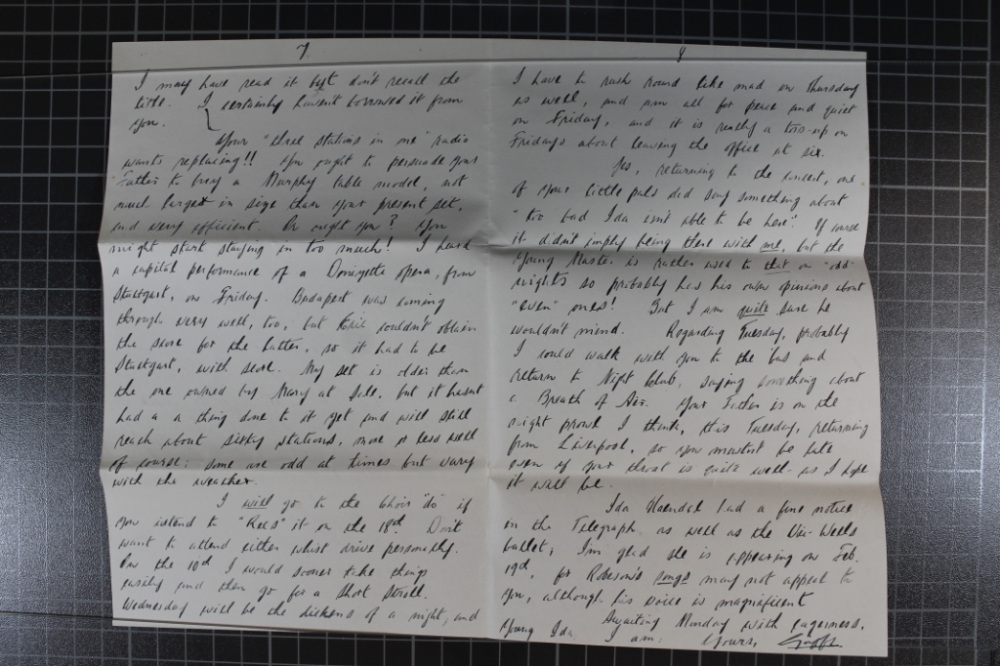 7
I may have read it but don't recall the
title. I certainly haven't borrowed it from
you.
Your "three stations in one" radio
wants replacing!! You ought to persuade your
Father to buy a Murphy table model, not
much larger in size than your present set,
and very efficient. Or ought you? You
might start staying in too much! I heard
a capital performance of a Donizetti opera, from
Stuttgart, on Friday. Budapest was coming
through very well, too, but couldn't obtain
the score for the latter, so it had to be
Stuttgart, with score. My set is older than
the one owned by Mary at Sale, but it hasn't
had a a thing done to it yet and will still
reach about sixty stations, more or less well
of course: some are odd at times but vary
with the weather.
I will go to the choir "do" if
you intend to "Reels" it on the 18th. Don't
want to attend either whist drive personally.
On the 10th I would sooner take things
easily and then go for a short stroll.
Wednesday will be the dickens of a night, and
8
I have to rush round like mad on Thursday
as well, and am all for peace and quiet
on Friday, and it is really a toss-up on
Fridays about leaving the office at six.
Yes, returning to the concert, one
of your little pals did say something about
"too bad Ida isn't able to be here". Of course
it didn't imply being there with me, but the
Young Master is rather used to that on "odd"
nights so probably has his own opinions about
"even" ones! But I am quite sure he
wouldn't mind. Regarding Tuesday, probably
I could walk with you to the bus and
return to Night Club, saying something about
a Breath of Air. Your Father is on the
night prowl I think, this Tuesday, returning
from Liverpool, so you mustn't be late
even if your throat is quite well as I hope
it will be.
Ida Haendel had a fine notice
in the Telegraph as well as the Vic-Wells
ballet; I'm glad she is appearing on Feb.
19th, for Robeson's songs may not appeal to
you, although his voice is magnificent
Awaiting Monday with eagerness,
Young Ida, I am: Yours,